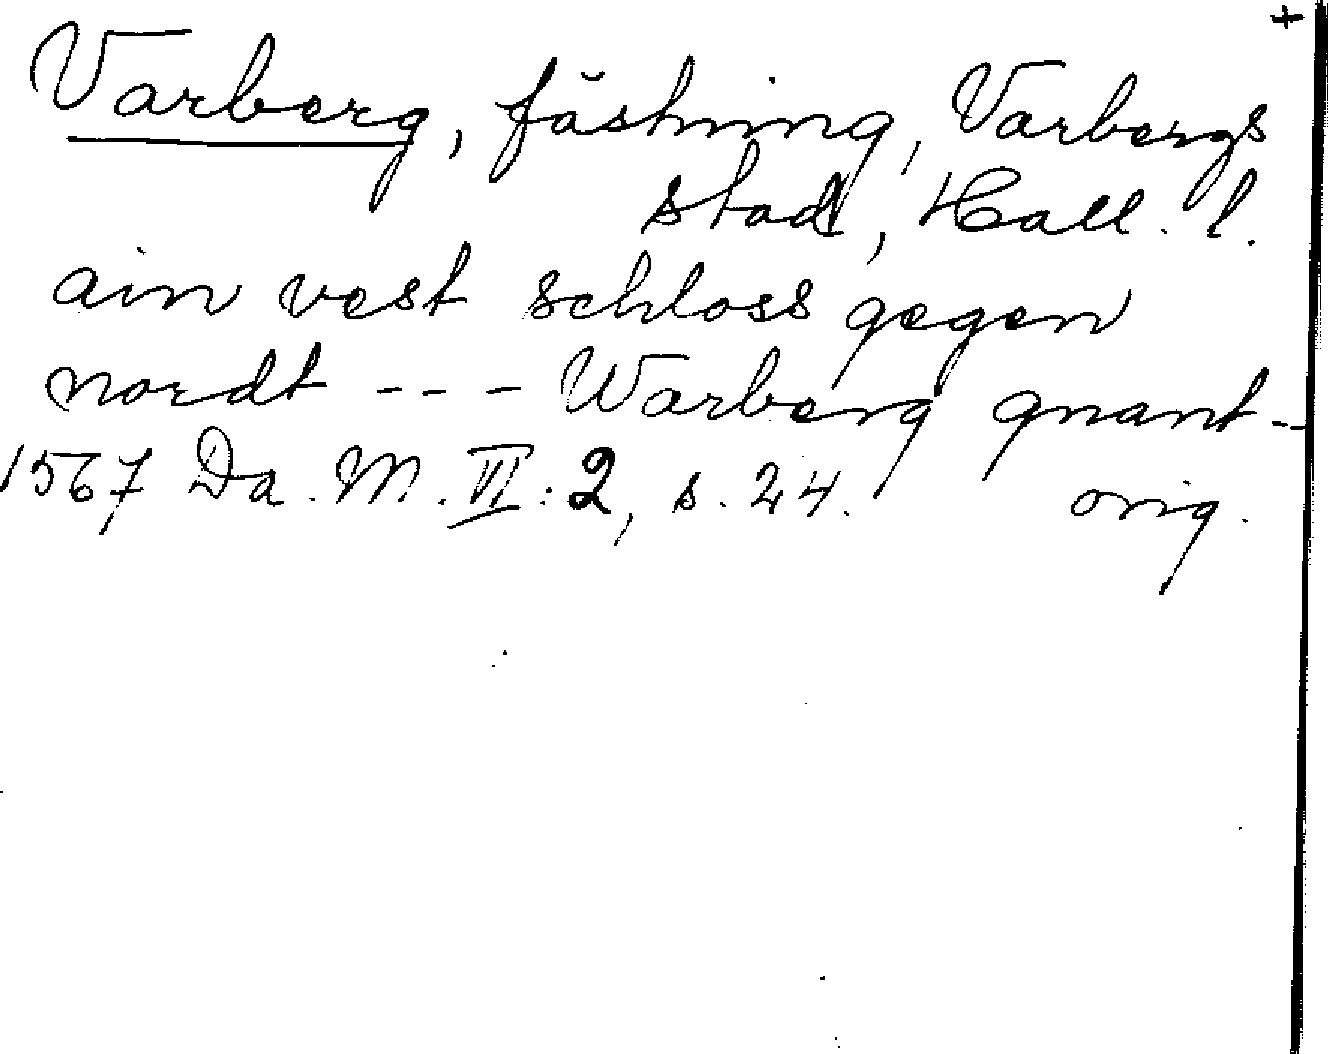 +
Varberg, fästning, Varbergs
stad, Hall. l.
ain vest schloss gegen
nordt --- Warberg gnant --
1567 Da. M. VI: 2, s. 24. orig.